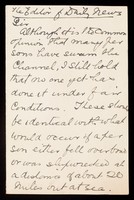 The Editor of Daily News
Sir
Although it is the common
opinion that many per
sons have swum the
Channel, I still hold
that no one yet has
done it under fair
conditions. These should
be identical with what
would occur if a per
son either fell overboard
or was shipwrecked at
a distance of about 20
miles out at sea.